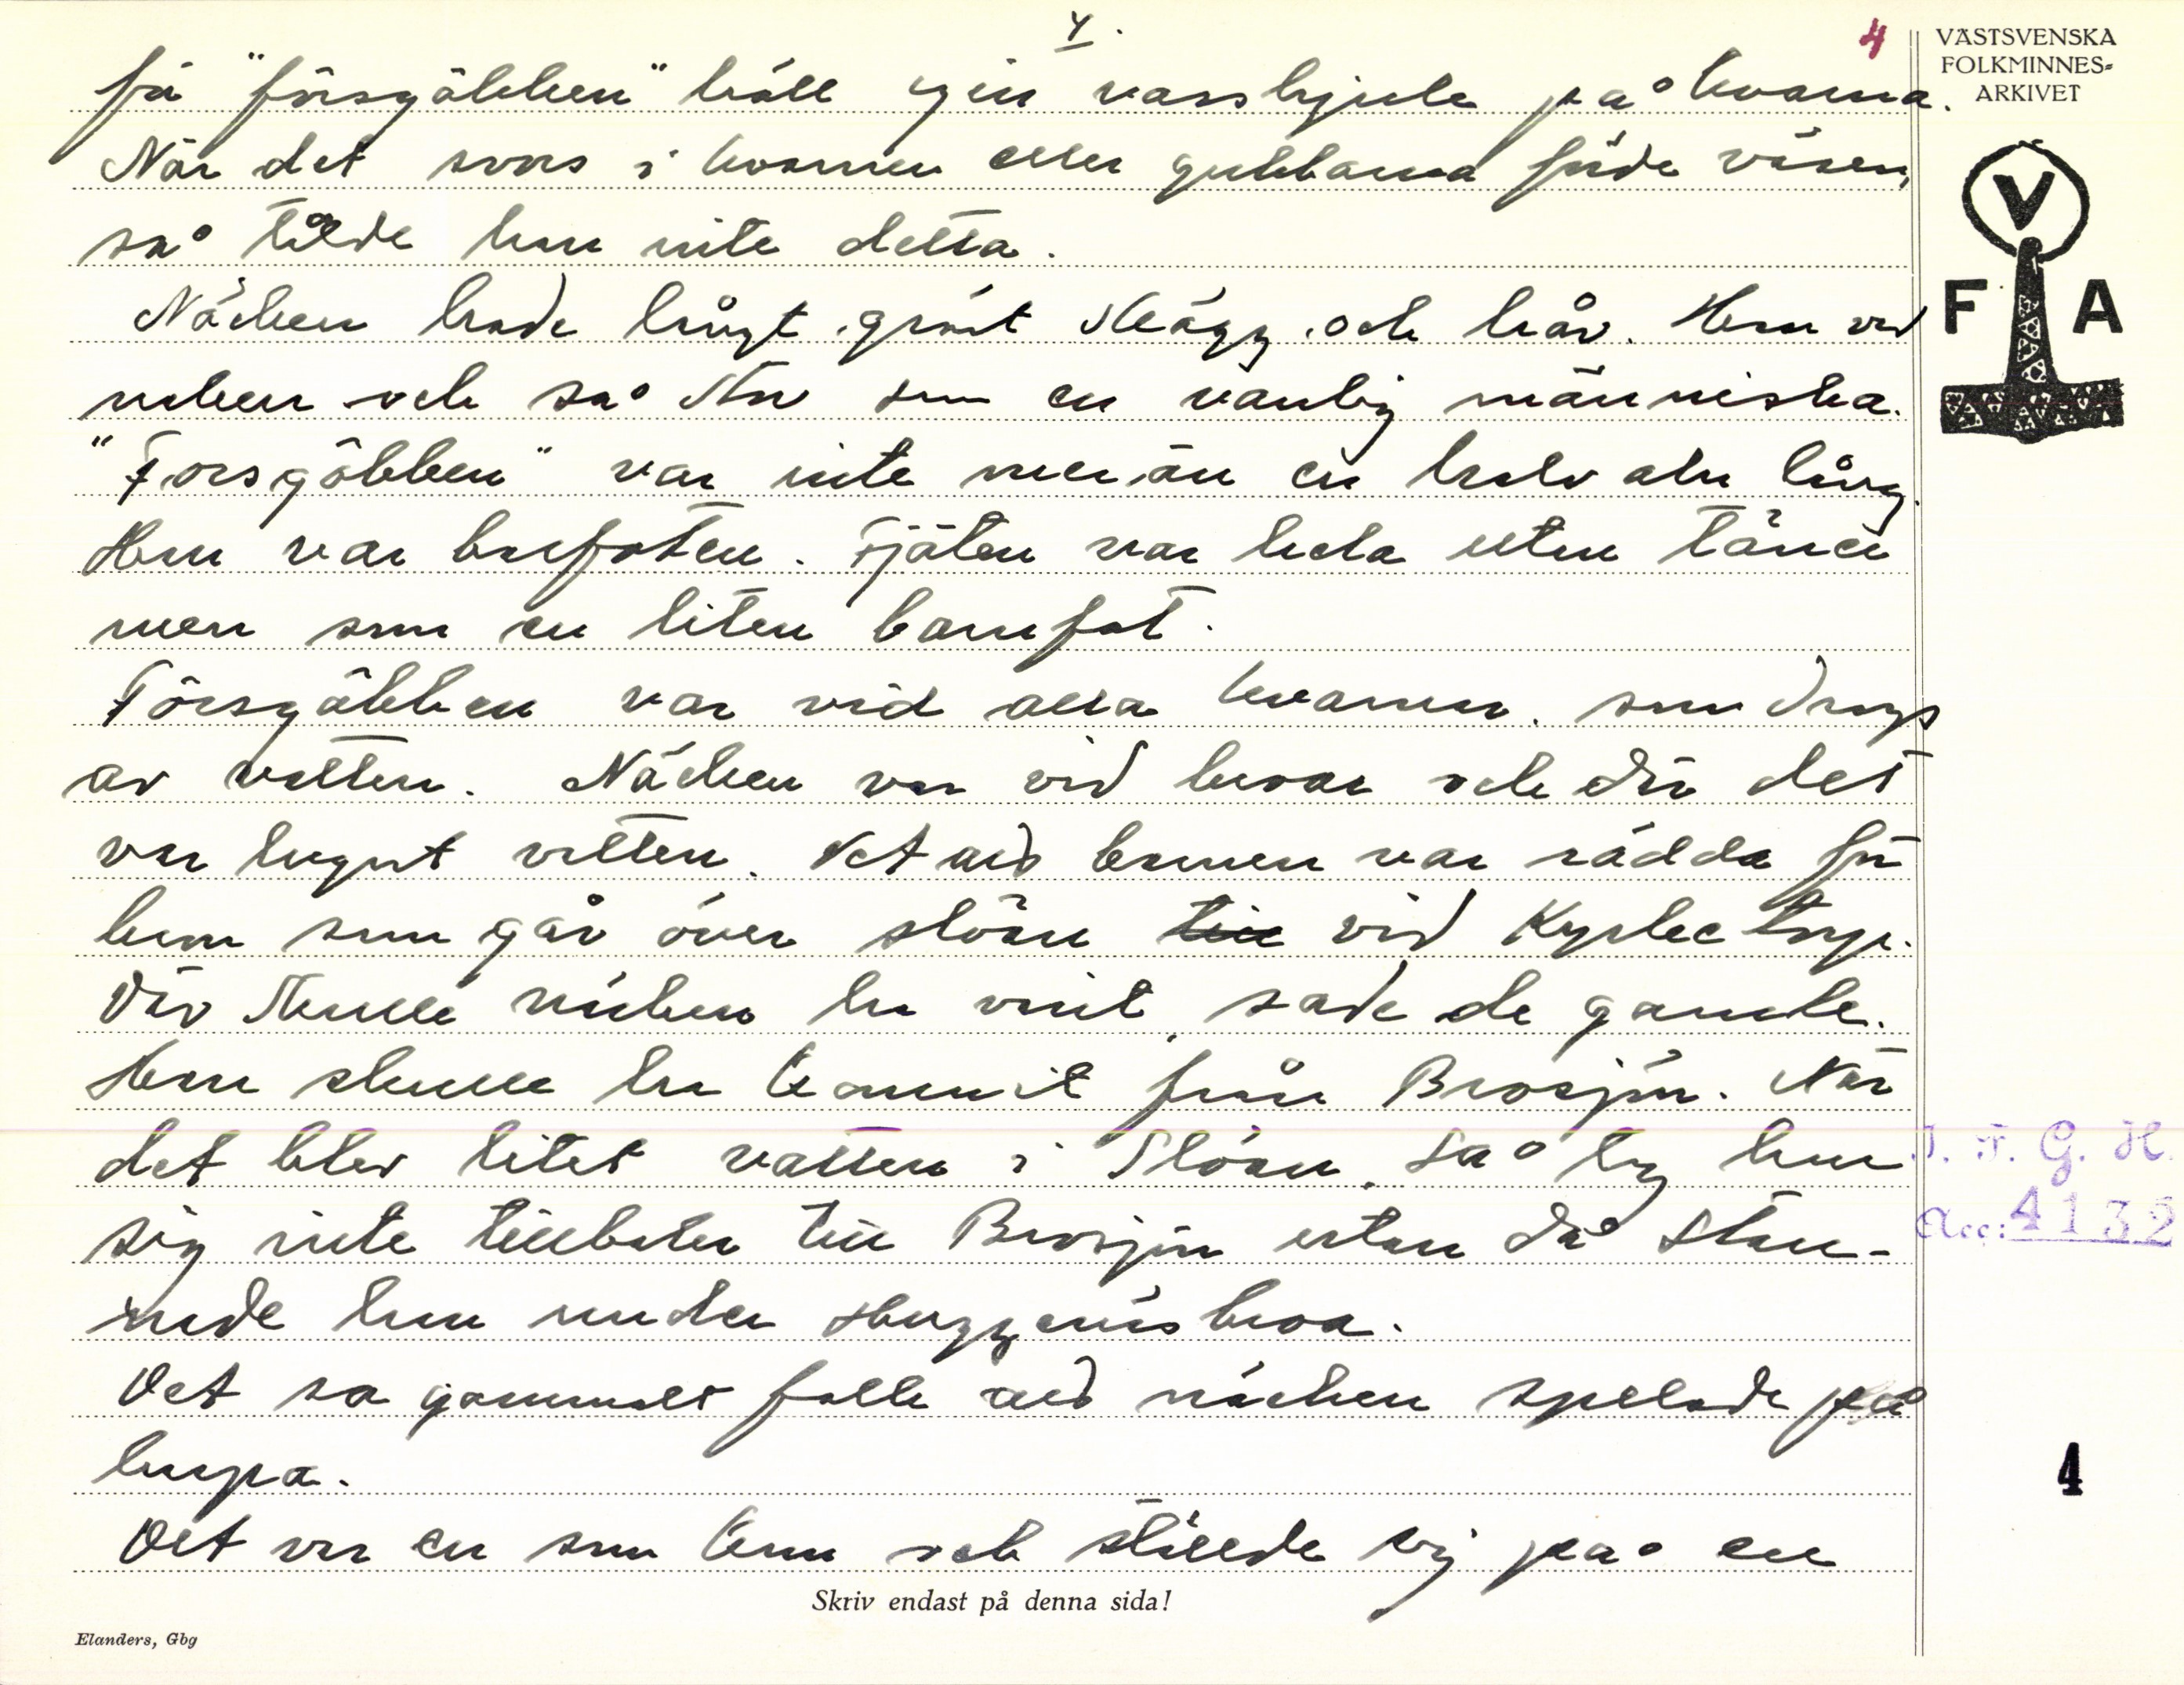 4.
4
VÄSTSVENSKA
FOLKMINNES-
ARKIVET
för "försgöbben" höll igen vasshjule på kvarna.
När det svors i kvarnen eller gubbarna förde väsen,
så tålde han inte detta.
Näcken hade långt grått skägg och hår. Han var
naken och såg stor som en vanlig människa.
"Forsgöbben" var inte mer än en halv aln lång.
Han var barfoten. Fjäten var hela utan tåner
men som en liten barnfot.
Försgöbben var vid alla kvarnar som drogs
av vatten. Näcken var vid broar och där det
var lugnt vatten. Det att barnen var rädda för
bron som går över slöan till vid torp.
Där skulle näcken ha varit, sade de gamle.
Han skulle ha kommit från Brosjön. När
det blev litet vatten i Slöan, så tog han
sig inte tillbaka till Brosjön utan då stan-
nade han under broa.
Det sa gammalt folk att näcken spelade på
harpa.
Det var en som kom och ställde sig på en
V
F A
I. F. G. H.
Acc: 4132
4
Skriv endast på denna sida!
Elanders, Gbg